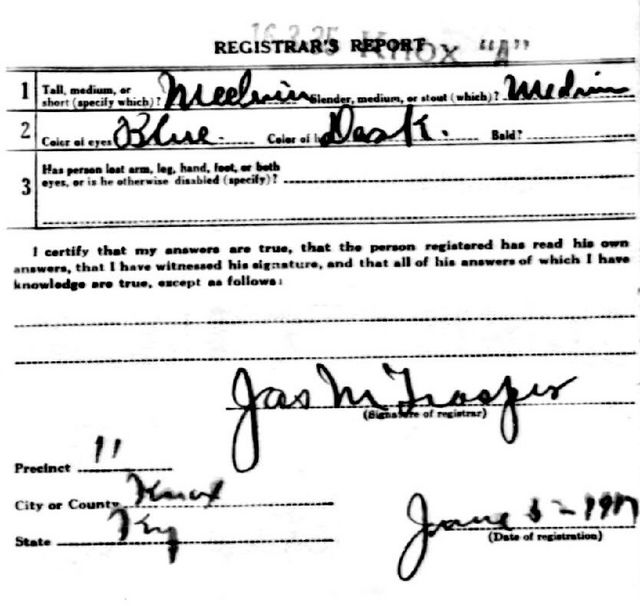 16 2 25 Knox "A"
REGISTRAR'S REPORT
1 Tall, medium, or short (specify which)? Medium Slender, medium, or stout (which)? Medium
2 Color of eyes Blue Color of h Dark. Bald?
3 Has person lost arm, leg, hand, foot, or both
eyes, or is he otherwise disabled (specify)?
I certify that my answers are true, that the person registered has read his own
answers, that I have witnessed his signature, and that all of his answers of which I have
knowledge are true, except as follows:
Jas M
(Signature of registrar)
Precinct 11
City or County Knox
State Ky
June 5 - 1917
(Date of registration)